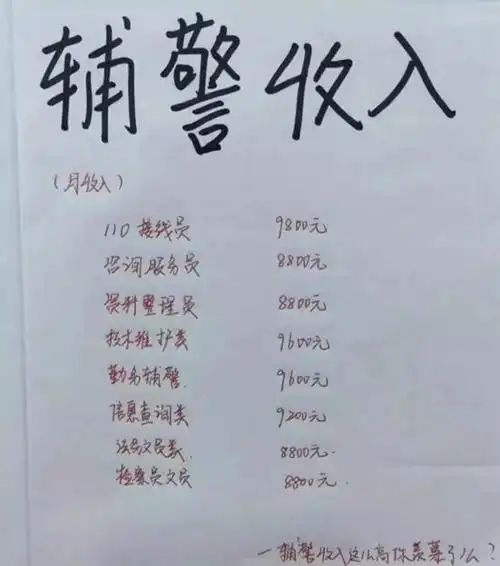 辅警收入
(月收入)
110接线员 9800元
咨询服务员 8800元
资料整理员 8800元
技术维护类 9600元
勤务辅警 9600元
信息查询类 9200元
法务文员类. 8800元.
检察员文员 8800元.
一辅警收入这么高你羡慕了么?